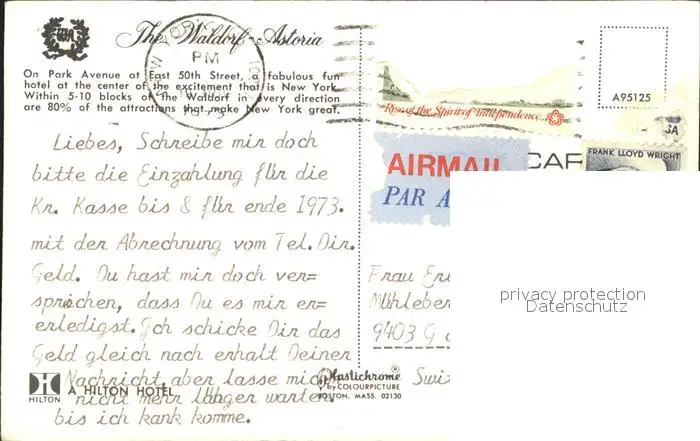 The Waldorf-Astoria
On Park Avenue at East 50th Street, a fabulous fun
hotel at the center of the excitement that is New York.
Within 5-10 blocks of the Waldorf in every direction
are 80% of the attractions that make New York great.
PM
Rise of the Spirit of Independence
A95125
3A
FRANK LLOYD WRIGHT
AIRMAIL
PAR A
CAR
Liebes, Schreibe mir doch
bitte die Einzahlung für die
Kr. Kasse bis & für ende 1973.
mit der Abrechnung vom Tel. Dir.
Geld. Du hast mir doch ver=
sprochen, dass Du es mir er=
erledigst. Ich schicke Dir das
Geld gleich nach erhalt Deiner
Nachricht, aber lasse mich
nicht mehr länger warten.
bis ich kank komme.
Frau Eri
Mühleber
9403 G
Swi
privacy protection
Datenschutz
HILTON
A HILTON HOTEL
Plastichrome
by COLOURPICTURE
BOSTON, MASS. 02130